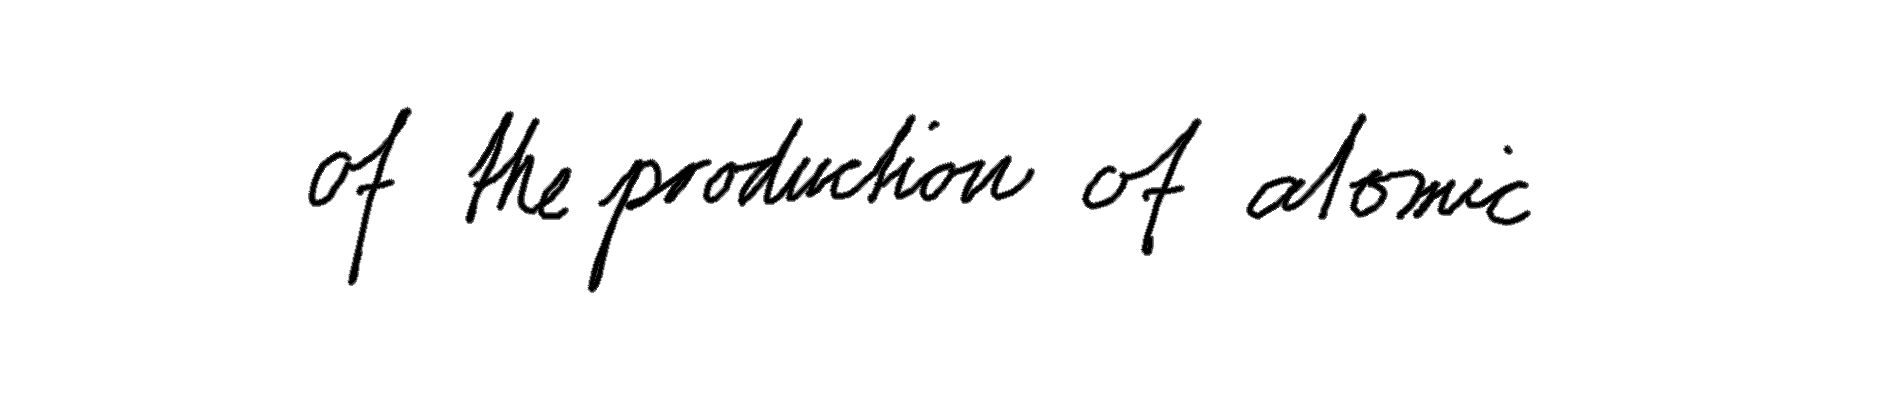 of the production of atomic